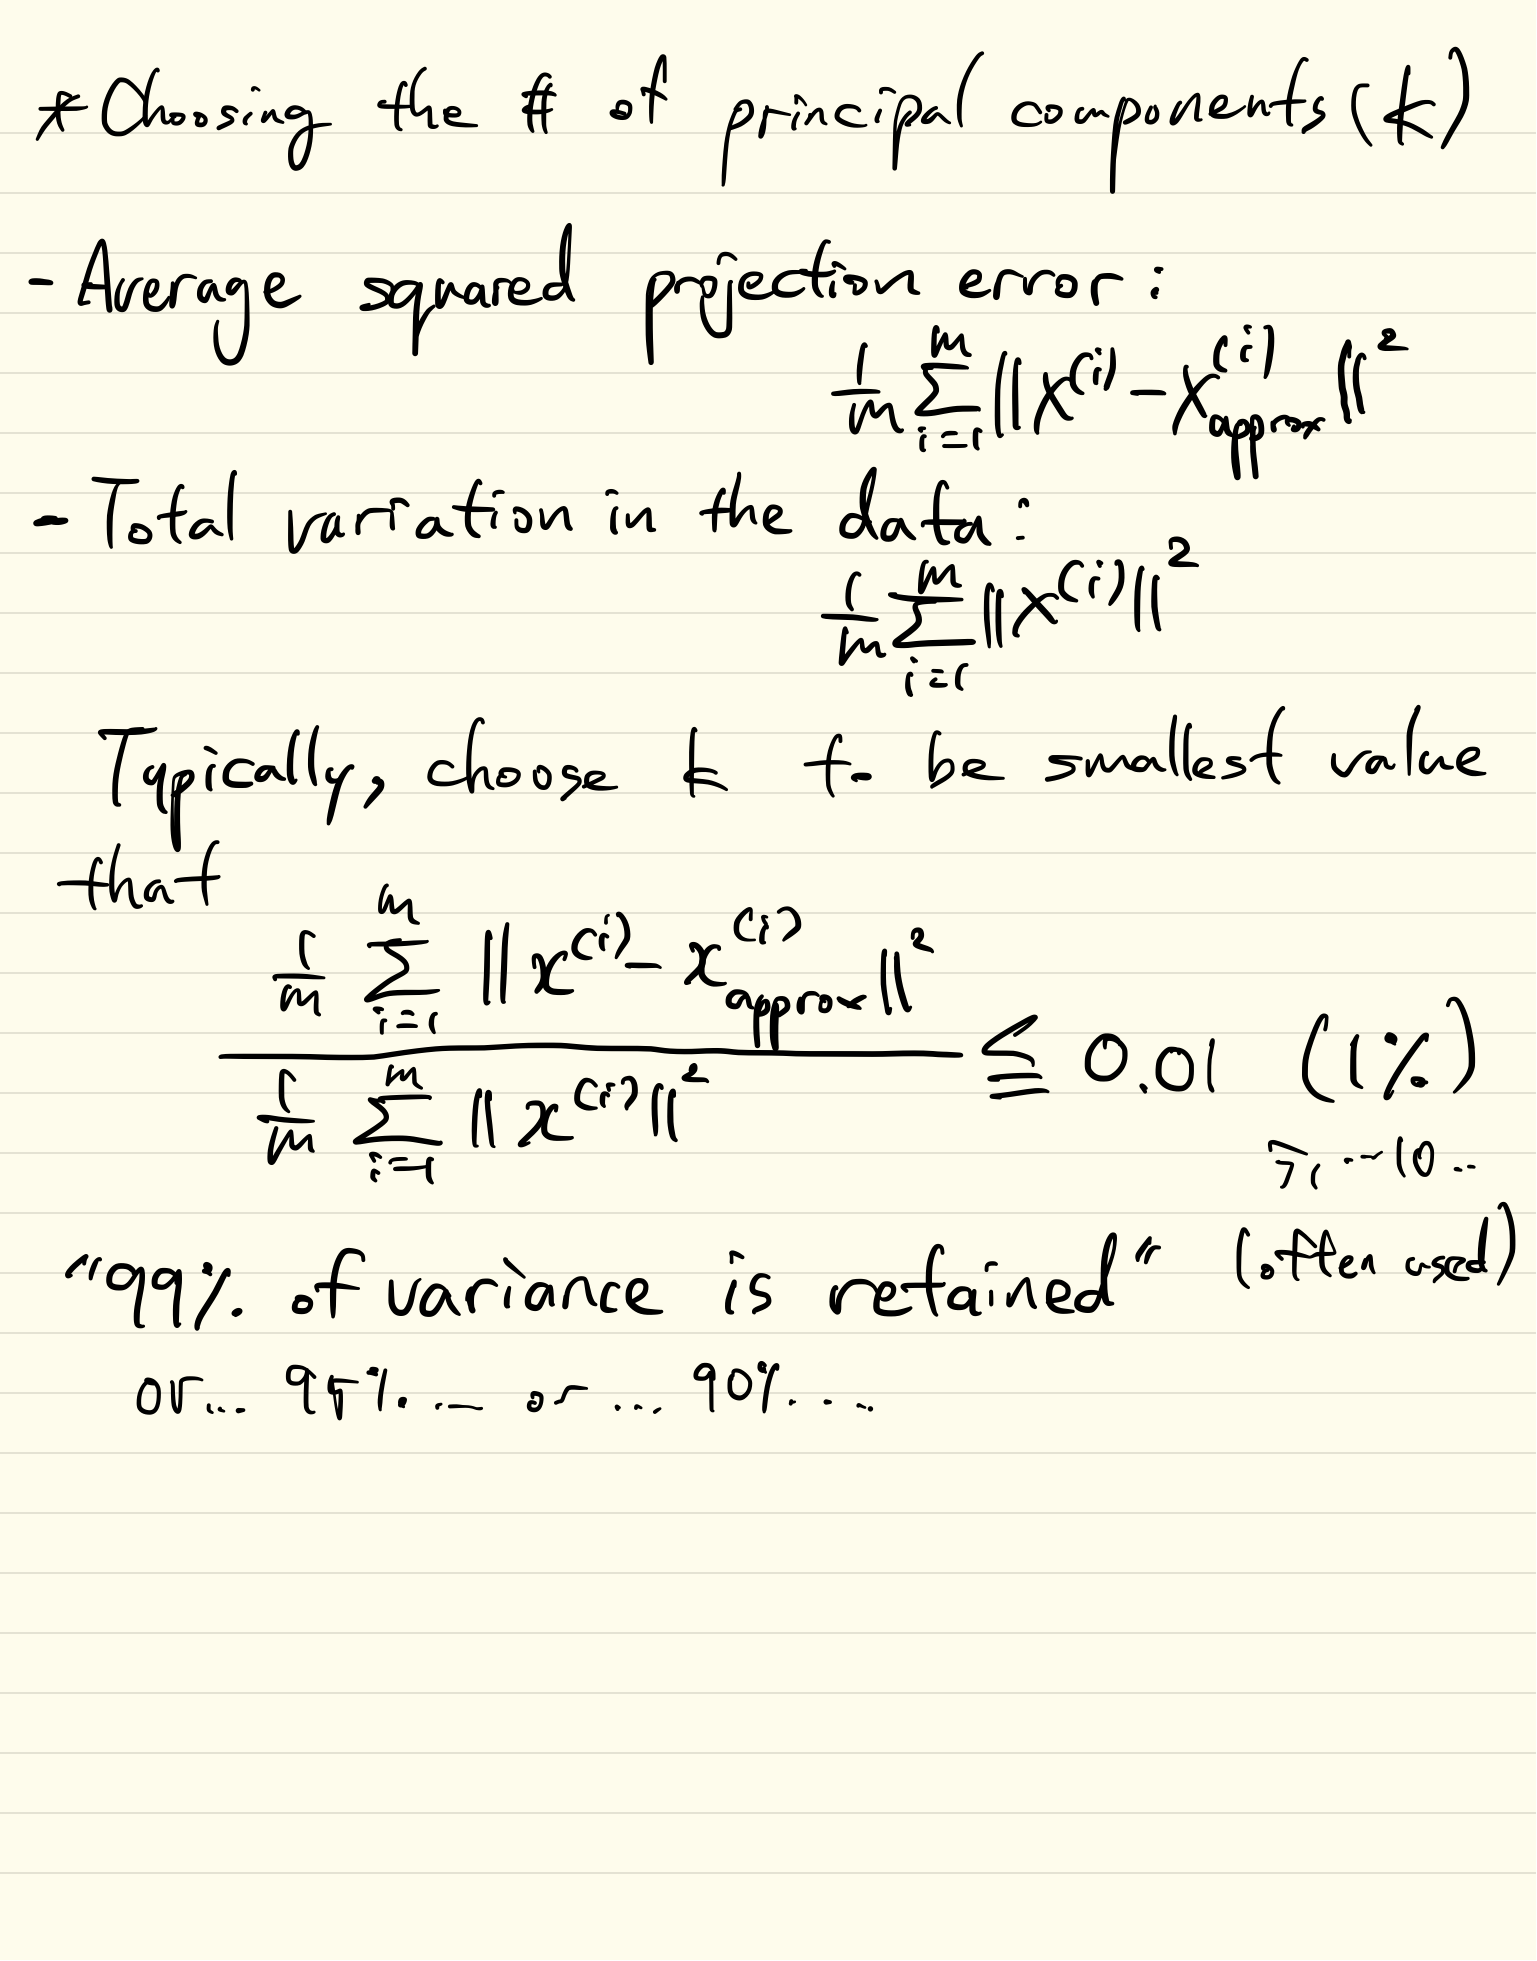 * Choosing the # of principal components (k)
- Average squared projection error:
1/m Σ_{i=1}^{m} || x^(i) - x_approx^(i) ||^2
- Total variation in the data:
1/m Σ_{i=1}^{m} || x^(i) ||^2
Typically, choose k to be smallest value
that
1/m Σ_{i=1}^{m} || x^(i) - x_approx^(i) ||^2
1/m Σ_{i=1}^{m} || x^(i) ||^2
≦ 0.01 (1%)
10..
"99% of variance is retained" (often used)
or... 95% ... or ... 90% ...